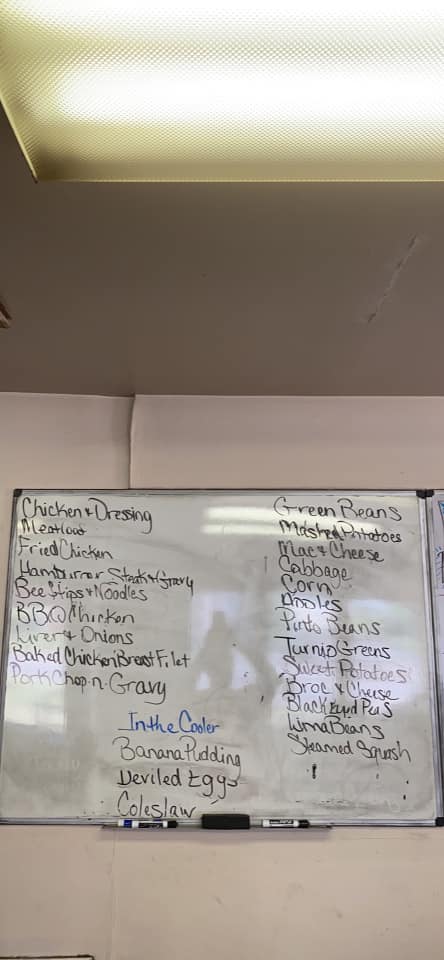 Chicken & Dressing
Meatloaf
Fried Chicken
Hamburger Steak & Gravy
Beef Tips & Noodles
BBQ Chicken
Liver & Onions
Baked Chicken Breast Filet
Pork Chop-n-Gravy
In the Cooler
Banana Pudding
Deviled Eggs
Coleslaw
Green Beans
Mashed Potatoes
Mac & Cheese
Cabbage
Corn
Apples
Pinto Beans
Turnip Greens
Sweet Potatoes
Broc & Cheese
Black Eyed Peas
Lima Beans
Steamed Squash